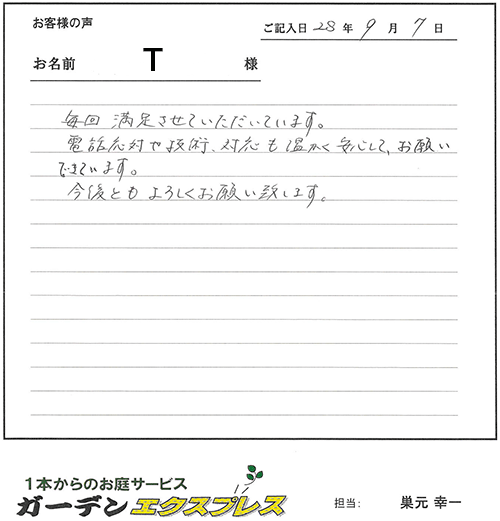 お客様の声
ご記入日 28 年 9 月 7 日
お名前 T 様
毎回 満足させていただいています。
電話応対や技術、対応も温かく安心して、お願い
できています。
今後とも よろしくお願い致します。
1本からのお庭サービス
ガーデンエクスプレス
担当: 巣元 幸一